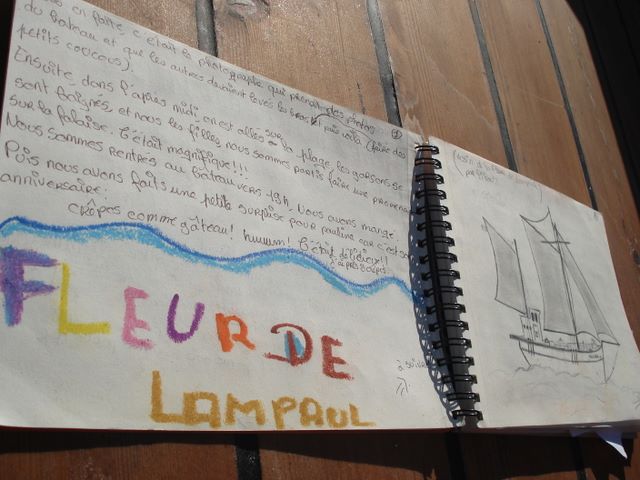 en faite c'était la photographe qui prenait des photos
du bateau et que les autres devaient levés les bras puis voilà (faire des
petits coucous).
Ensuite dans l'après midi, on est allés sur la plage, les garçons se
sont baignés, et nous les filles, nous sommes partis faire une promenade
sur la falaise. C'était magnifique!!!
Nous sommes rentrés au bateau vers 19h. Nous avons mangé
Puis nous avons faits une petite surprise pour pauline car c'est son
anniversaire.
Crêpes comme gâteau! huuum! C'était délicieux!!
FLEUR DE
LAMPAUL
à suivre